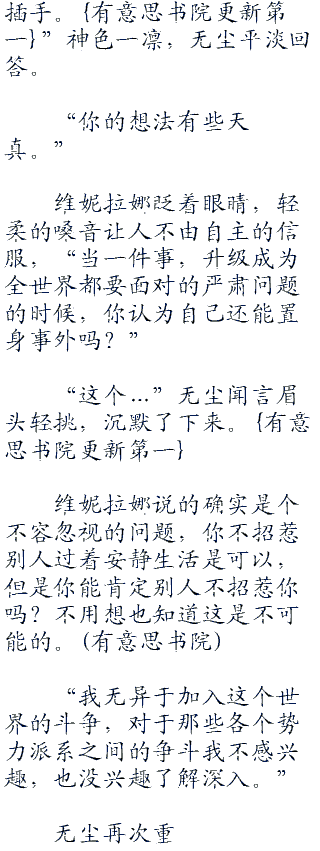 插手。{有意思书院更新第
一}”神色一凛，无尘平淡回
答。
“你的想法有些天
真。”
维妮拉娜眨着眼睛，轻
柔的嗓音让人不由自主的信
服，“当一件事，升级成为
全世界都要面对的严肃问题
的时候，你认为自己还能置
身事外吗？”
“这个…”无尘闻言眉
头轻挑，沉默了下来。{有意
思书院更新第一}
维妮拉娜说的确实是个
不容忽视的问题，你不招惹
别人过着安静生活是可以，
但是你能肯定别人不招惹你
吗？不用想也知道这是不可
能的。(有意思书院)
“我无异于加入这个世
界的斗争，对于那些各个势
力派系之间的争斗我不感兴
趣，也没兴趣了解深入。”
无尘再次重